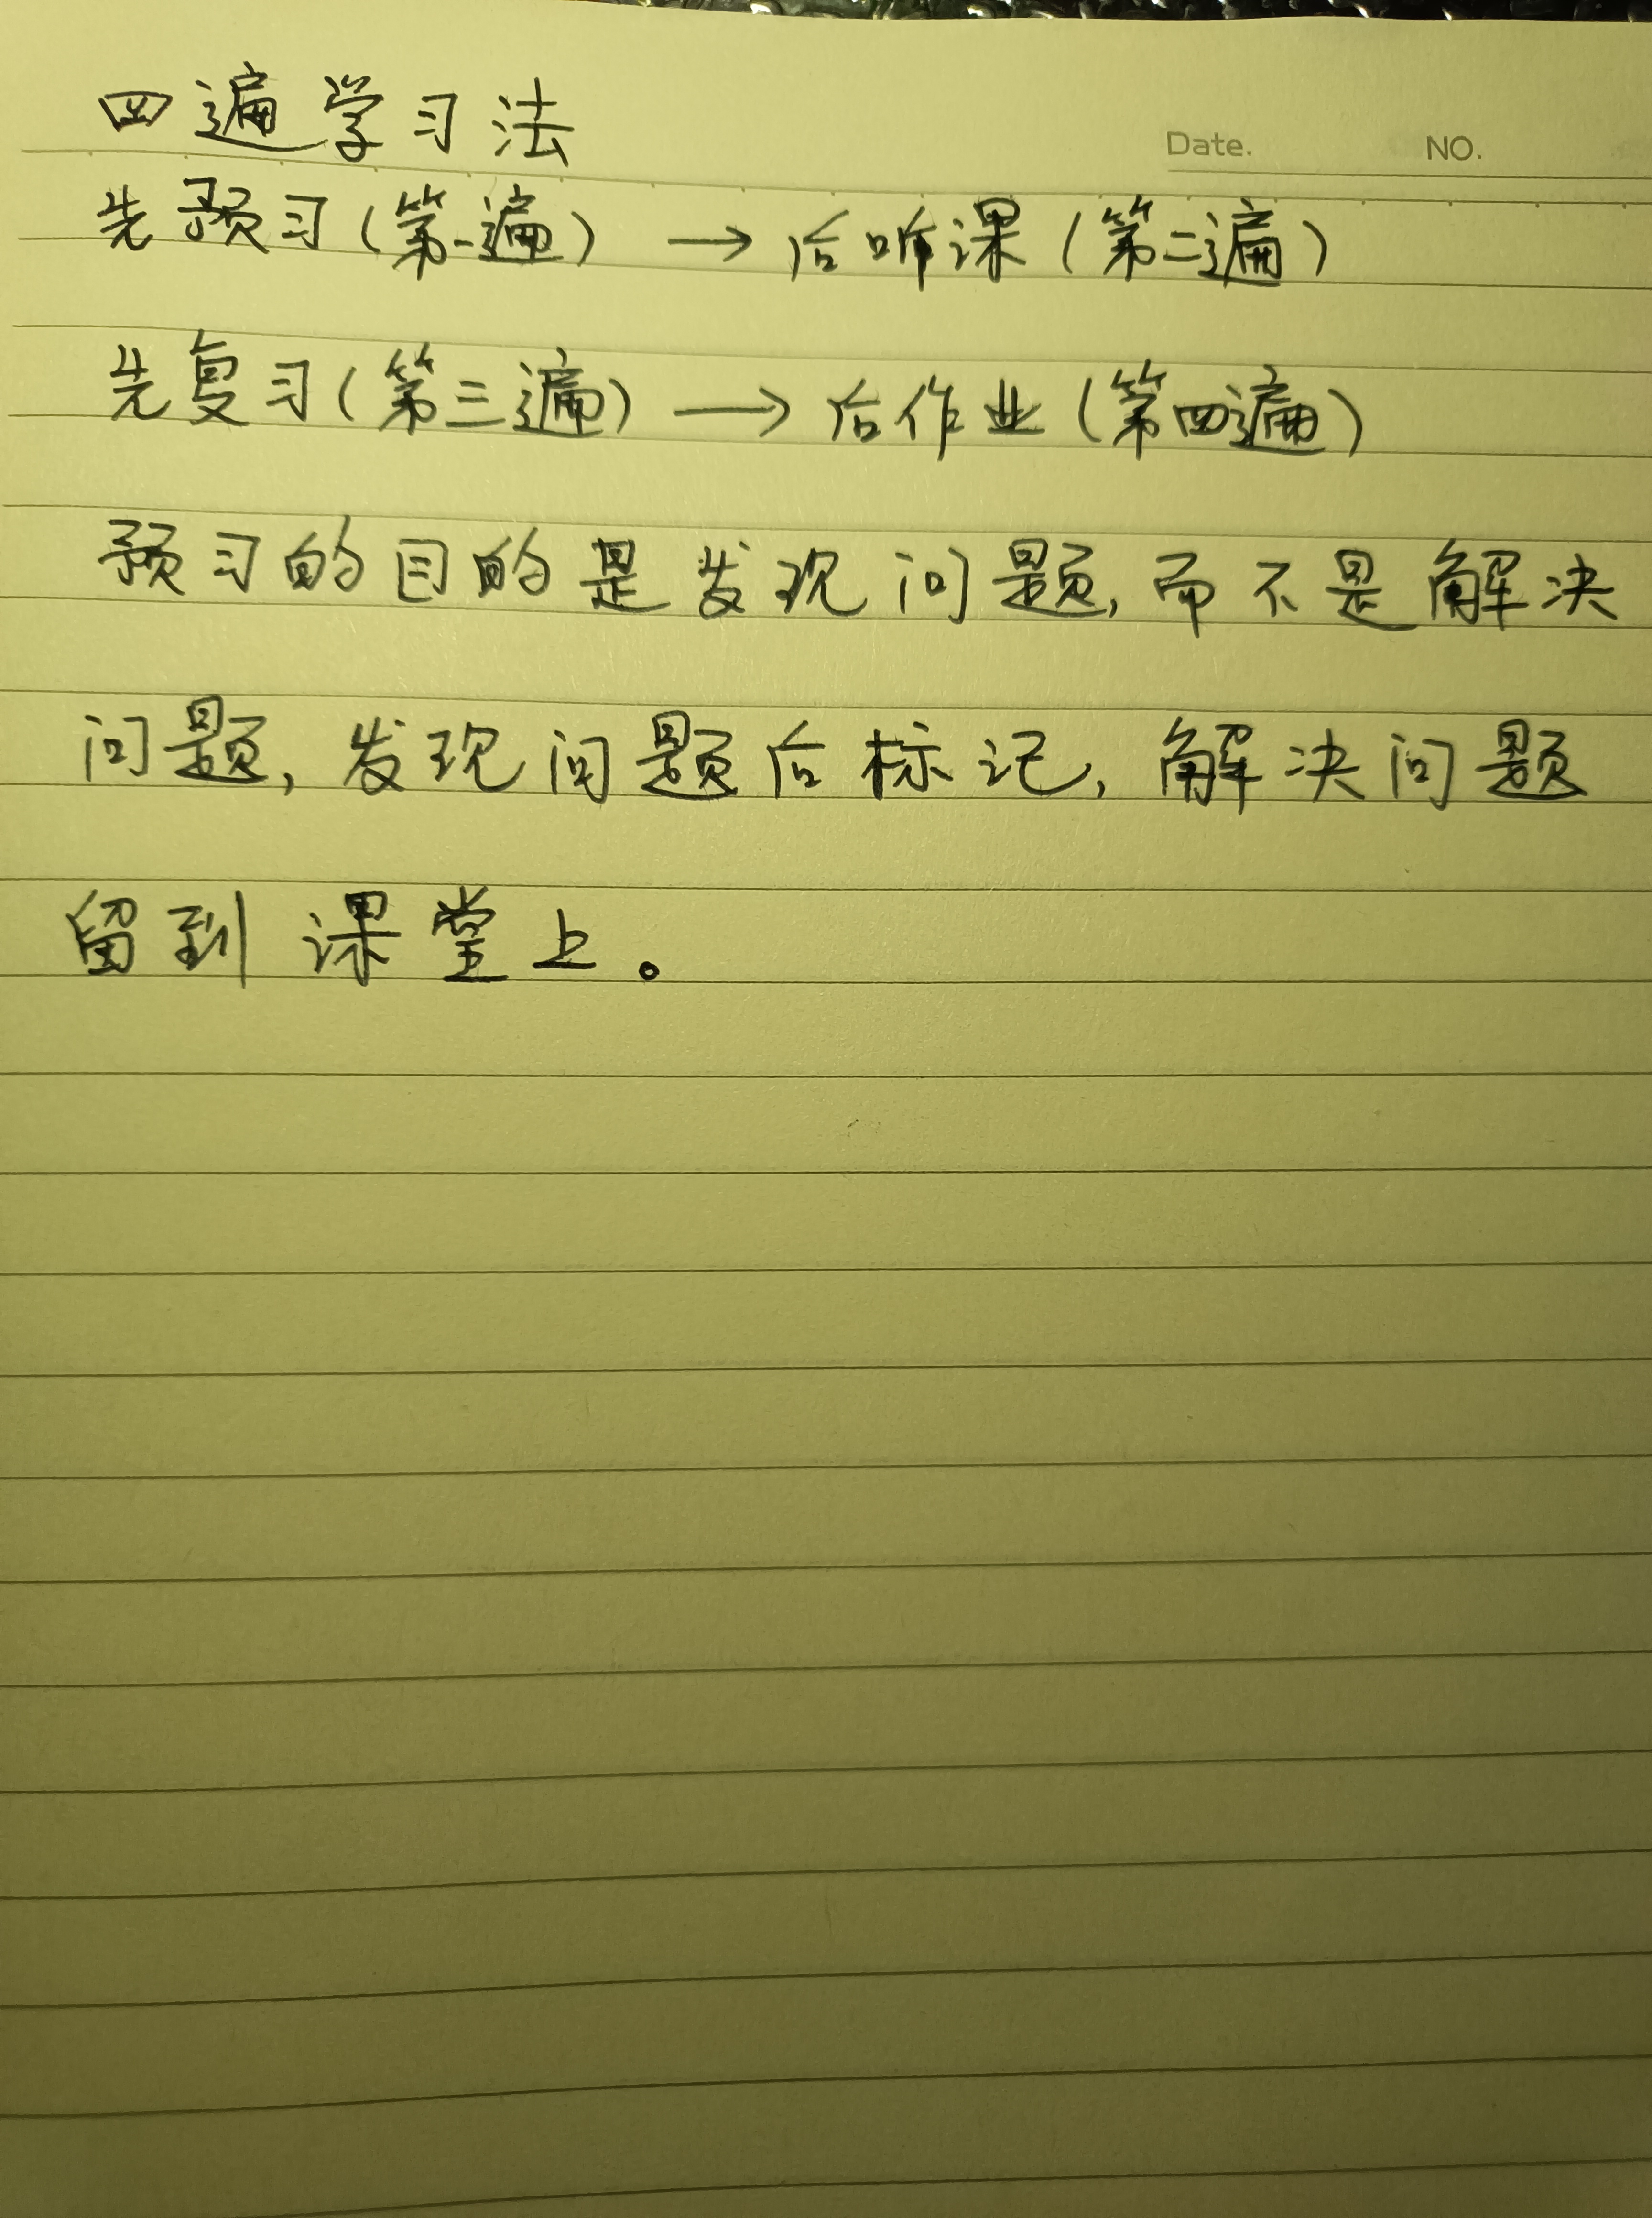 四遍学习法
Date. NO.
先预习(第一遍) → 后听课(第二遍)
先复习(第三遍) → 后作业(第四遍)
预习的目的是发现问题,而不是解决
问题,发现问题后标记,解决问题
留到课堂上。